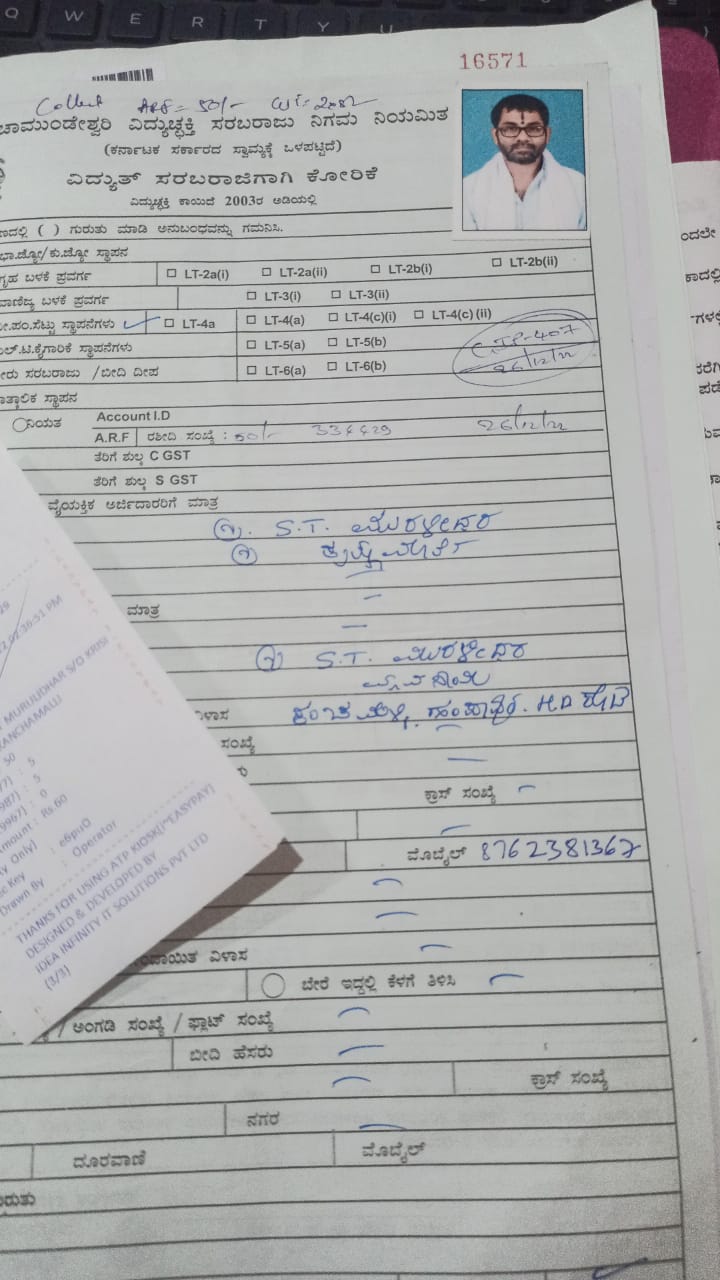 16571
Collect ARF = 50/-
ಚಾಮುಂಡೇಶ್ವರಿ ವಿದ್ಯುಚ್ಛಕ್ತಿ ಸರಬರಾಜು ನಿಗಮ ನಿಯಮಿತ
(ಕರ್ನಾಟಕ ಸರ್ಕಾರದ ಸ್ವಾಮ್ಯಕ್ಕೆ ಒಳಪಟ್ಟಿದೆ)
ವಿದ್ಯುತ್ ಸರಬರಾಜಿಗಾಗಿ ಕೋರಿಕೆ
ವಿದ್ಯುಚ್ಛಕ್ತಿ ಕಾಯಿದೆ 2003ರ ಅಡಿಯಲ್ಲಿ
( ) ಗುರುತು ಮಾಡಿ ಅನುಬಂಧವನ್ನು ಗಮನಿಸಿ.
ಭಾ.ಜ್ಯೋ/ಕು.ಜ್ಯೋ ಸ್ಥಾಪನ
ಗೃಹ ಬಳಕೆ ಪ್ರವರ್ಗ LT-2a(i) LT-2a(ii) LT-2b(i) LT-2b(ii)
ವಾಣಿಜ್ಯ ಬಳಕೆ ಪ್ರವರ್ಗ LT-3(i) LT-3(ii)
ನೀ.ಪಂ.ಸೆಟ್ಟು ಸ್ಥಾಪನೆಗಳು LT-4a LT-4(a) LT-4(c)(i) LT-4(c) (ii)
ಎಲ್.ಟಿ.ಕೈಗಾರಿಕೆ ಸ್ಥಾಪನೆಗಳು LT-5(a) LT-5(b)
ನೀರು ಸರಬರಾಜು /ಬೀದಿ ದೀಪ LT-6(a) LT-6(b)
26/12/22
ತಾತ್ಕಾಲಿಕ ಸ್ಥಾಪನ
ನಿಯತ Account I.D
A.R.F ರಶೀದಿ ಸಂಖ್ಯೆ : 50/- 26/12/22
ತೆರಿಗೆ ಶುಲ್ಕ C GST
ತೆರಿಗೆ ಶುಲ್ಕ S GST
ವೈಯಕ್ತಿಕ ಅರ್ಜಿದಾರರಿಗೆ ಮಾತ್ರ
S.T. ಮುರಳೀಧರ
ಮಾತ್ರ
S.T. ಮುರಳೀಧರ
ವ್ಯವಸಾಯ
ವಿಳಾಸ
ಸಂಖ್ಯೆ
ಕ್ರಾಸ್ ಸಂಖ್ಯೆ
ಮೊಬೈಲ್ 8762381367
ವಿಳಾಸ
ಬೇರೆ ಇದ್ದಲ್ಲಿ ಕೆಳಗೆ ತಿಳಿಸಿ
/ ಅಂಗಡಿ ಸಂಖ್ಯೆ / ಫ್ಲಾಟ್ ಸಂಖ್ಯೆ
ಬೀದಿ ಹೆಸರು
ಕ್ರಾಸ್ ಸಂಖ್ಯೆ
ನಗರ
ದೂರವಾಣಿ ಮೊಬೈಲ್
MURULIDHAR S/O KRISI
50
: 5
: 5
: 0
Amount : Rs.60
Only)
Key : e6puO
Drawn By : Operator
THANKS FOR USING ATP KIOSK(*EASYPAY)
DESIGNED & DEVELOPED BY
IDEA INFINITY IT SOLUTIONS PVT LTD
(3/3)